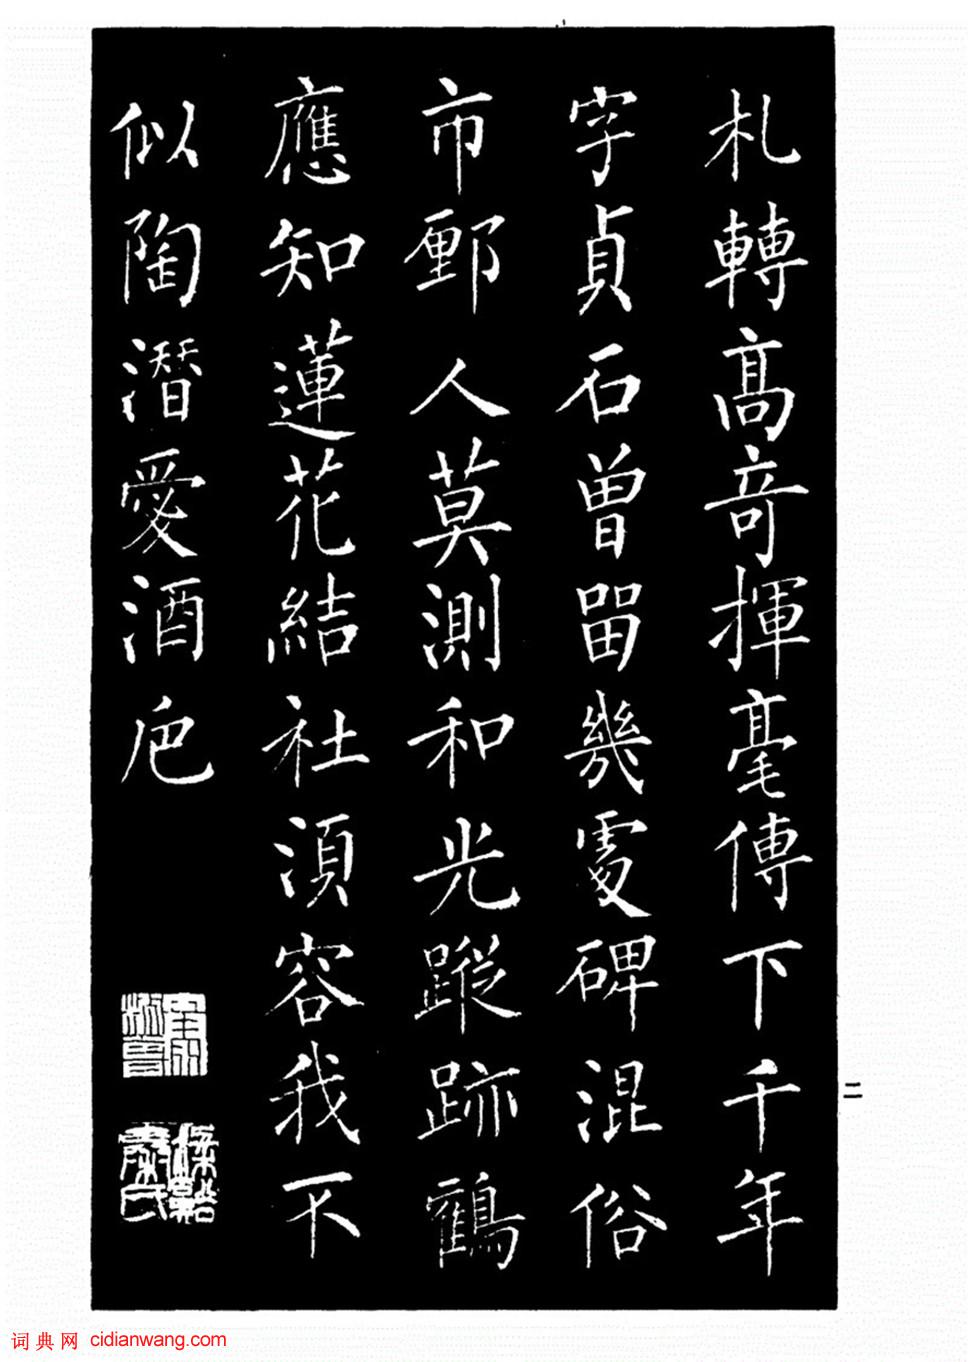 札轉高奇揮毫傳下千年
字貞石曾留幾處碑混俗
市鄽人莫測和光蹤跡鶴
應知蓮花結社須容我不
似陶潛愛酒卮
二
词典网 cidianwang.com